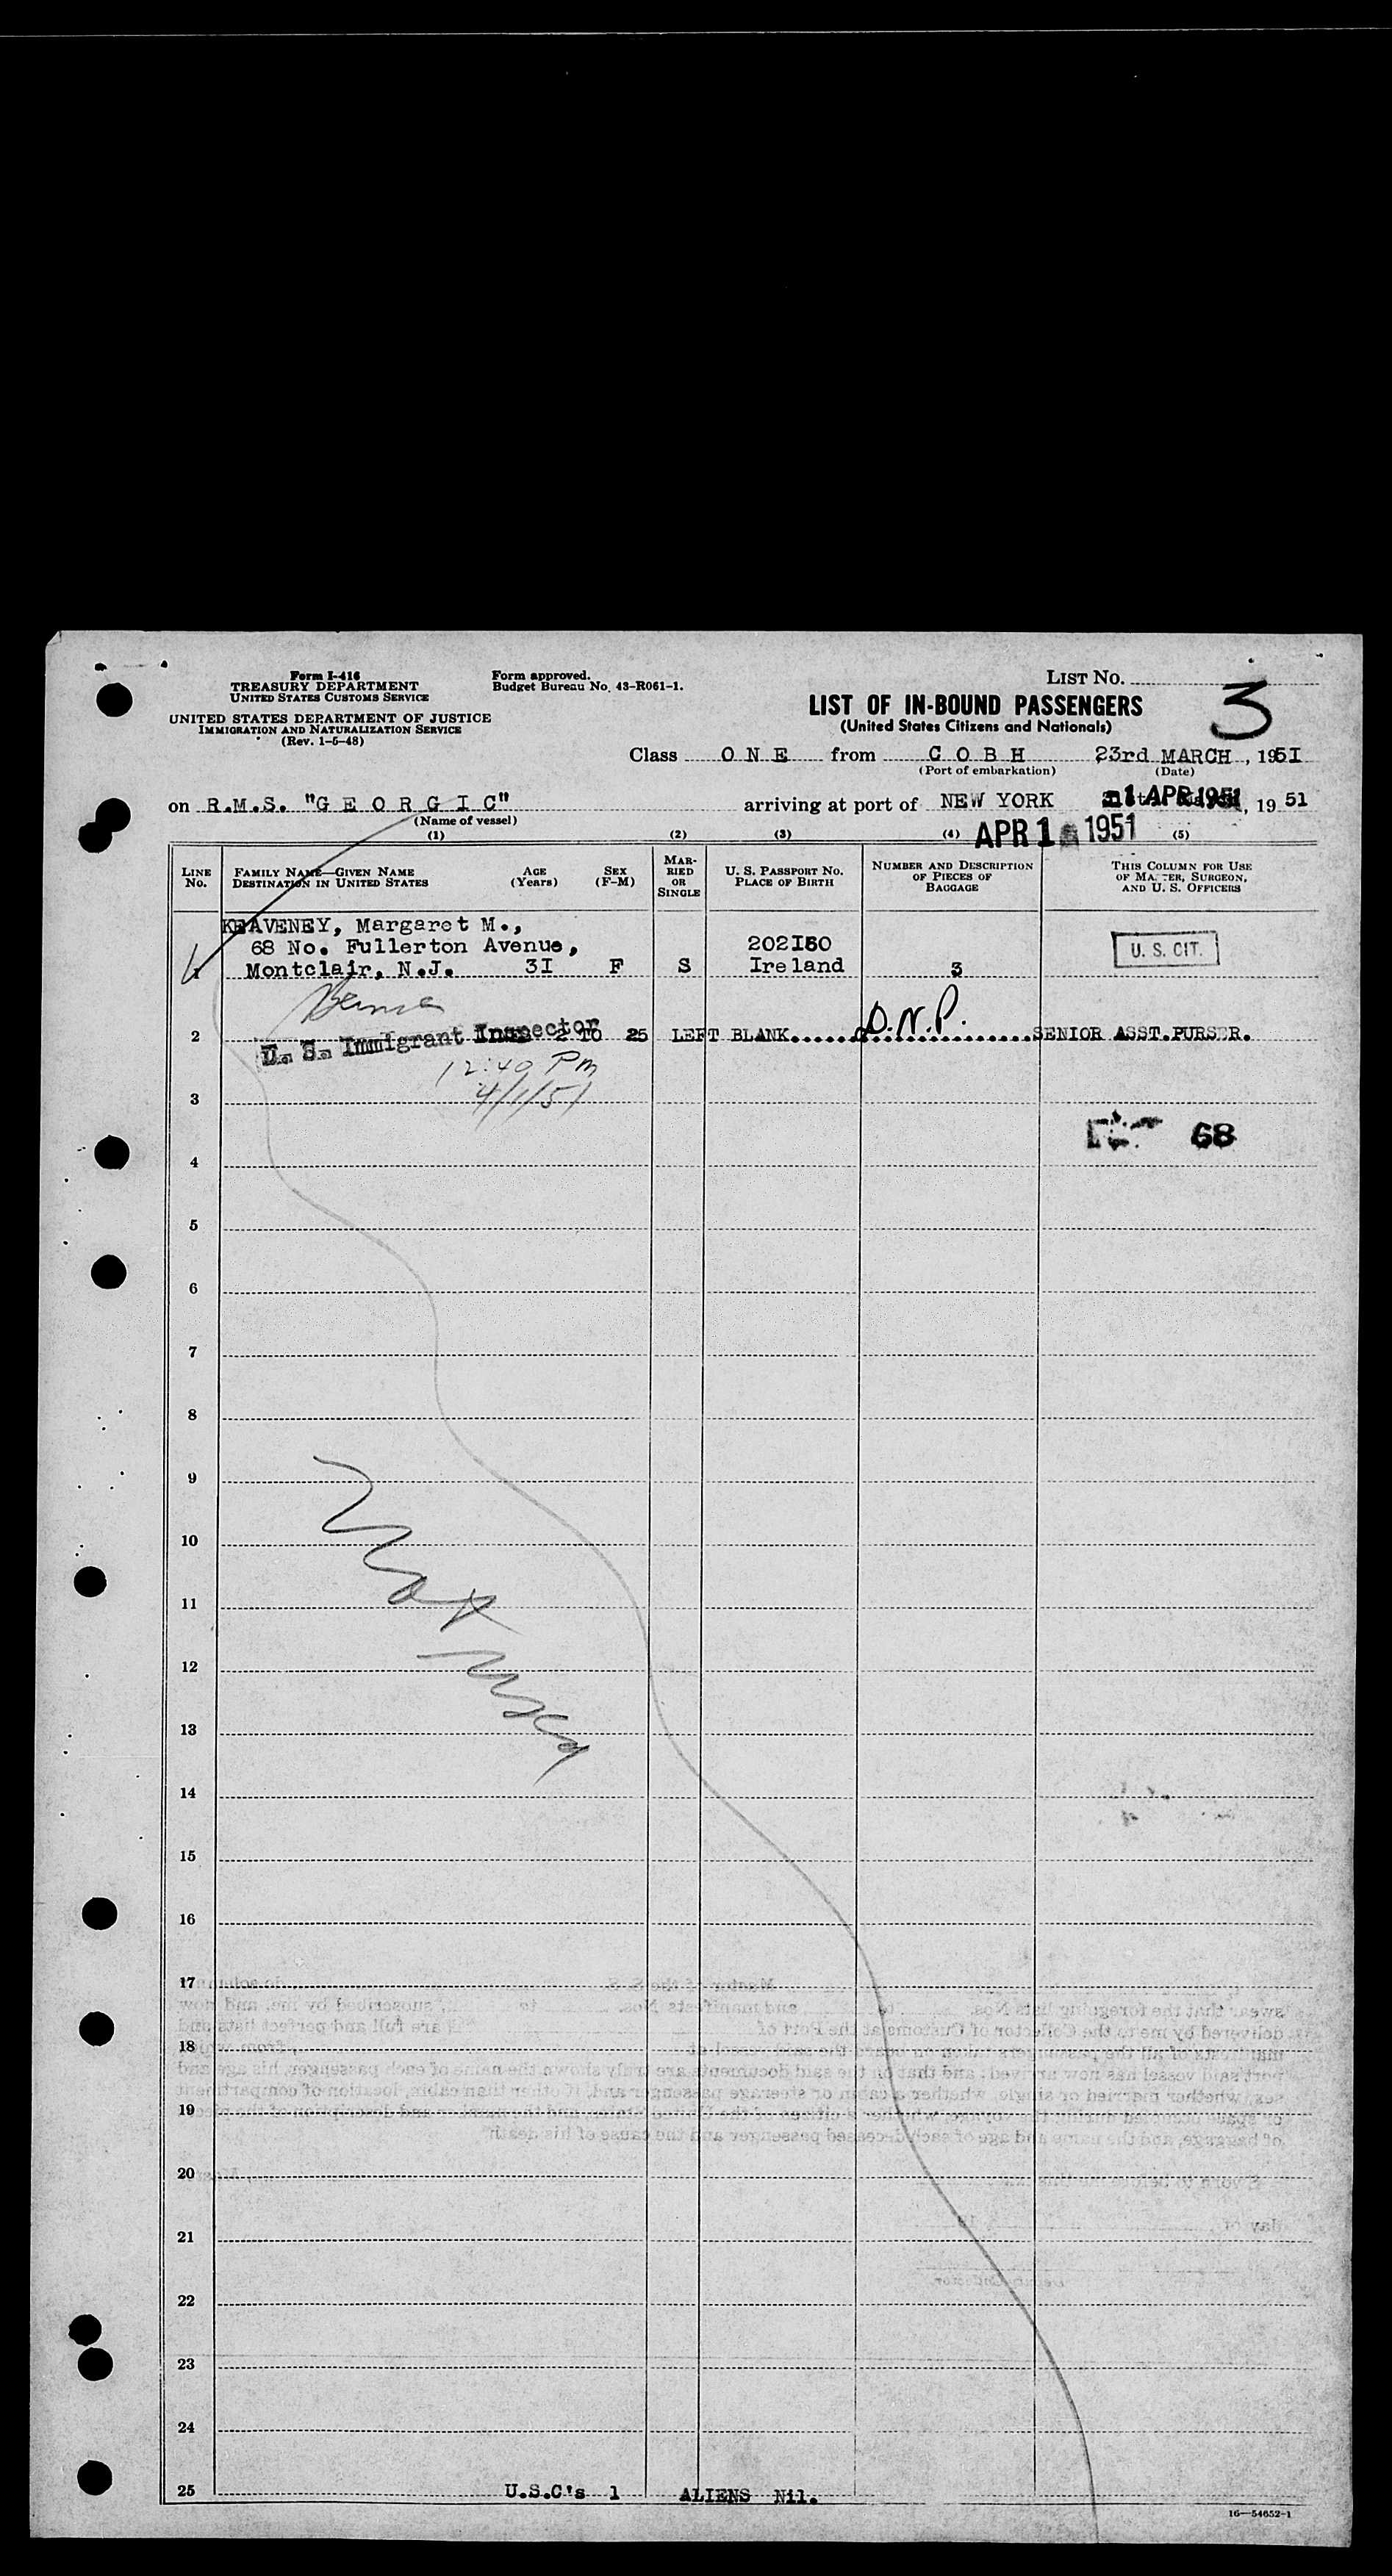 Form I-416
TREASURY DEPARTMENT
UNITED STATES CUSTOMS SERVICE
UNITED STATES DEPARTMENT OF JUSTICE
IMMIGRATION AND NATURALIZATION SERVICE
(Rev. 1-5-48)
Form approved.
Budget Bureau No. 43-R061-1.
LIST NO.
3
LIST OF IN-BOUND PASSENGERS
(United States Citizens and Nationals)
Class O N E from C O B H 23rd MARCH, 1951
(Port of embarkation) (Date)
on R.M.S. "G E O R G I C" arriving at port of NEW YORK 1 APR 1951, 19 51
(Name of vessel)
APR 1 1951
(1) (2) (3) (4) (5)
LINE NO.
FAMILY NAME—GIVEN NAME
DESTINATION IN UNITED STATES
AGE (Years)
SEX (F-M)
MARRIED OR SINGLE
U. S. PASSPORT NO.
PLACE OF BIRTH
NUMBER AND DESCRIPTION OF PIECES OF BAGGAGE
THIS COLUMN FOR USE OF MASTER, SURGEON, AND U. S. OFFICERS
KEAVENEY, Margaret M.,
68 No. Fullerton Avenue, 202I60 U. S. CIT.
1 Montclair, N.J. 3I F S Ireland 3
D.N.P.
2 U. S. Immigrant Inspector 2 TO 25 LEFT BLANK SENIOR ASST.PURSER.
12:40 Pm
4/1/51
3
68
4
5
6
7
8
9
10
11
12
13
14
15
16
17
18
19
20
21
22
23
24
25 U.S.C's 1 ALIENS Nil.
16—54652-1